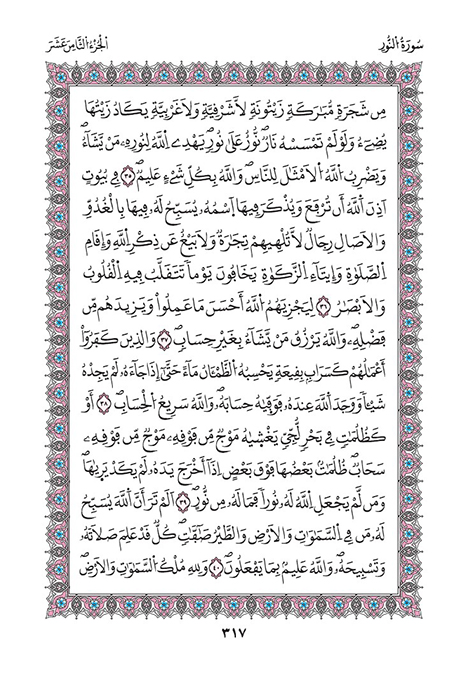 سُورَةُ النُّورِ
الْجُزْءُ الثَّامِنَ عَشَرَ
مِن شَجَرَةٖ مُّبَٰرَكَةٖ زَيْتُونَةٖ لَّا شَرْقِيَّةٖ وَلَا غَرْبِيَّةٖ يَكَادُ زَيْتُهَا
يُضِےٓءُ وَلَوْ لَمْ تَمْسَسْهُ نَارٞ نُّورٌ عَلَىٰ نُورٖ يَهْدِے اللَّهُ لِنُورِهِۦ مَنْ يَّشَآءُ
وَيَضْرِبُ اللَّهُ الْأَمْثَٰلَ لِلنَّاسِ وَاللَّهُ بِكُلِّ شَےْءٍ عَلِيمٞ ٣٥ فِے بُيُوتٍ
اَذِنَ اللَّهُ أَن تُرْفَعَ وَيُذْكَرَ فِيهَا اَسْمُهُۥ يُسَبِّحُ لَهُۥ فِيهَا بِالْغُدُوِّ
وَالْأصَالِ رِجَالٞ لَّا تُلْهِيهِمْ تِجَٰرَةٞ وَلَا بَيْعٌ عَن ذِكْرِ اللَّهِ وَإِقَامِ
الصَّلَوٰةِ وَإِيتَآءِ الزَّكَوٰةِ يَخَافُونَ يَوْماٗ تَتَقَلَّبُ فِيهِ الْقُلُوبُ
وَالْأَبْصَٰرُ ٣٦ لِيَجْزِيَهُمُ اللَّهُ أَحْسَنَ مَا عَمِلُواْ وَيَزِيدَهُم مِّن
فَضْلِهِۦ وَاللَّهُ يَرْزُقُ مَنْ يَّشَآءُ بِغَيْرِ حِسَابٖ ٣٧ وَالذِينَ كَفَرُوٓاْ
أَعْمَٰلُهُمْ كَسَرَابِۭ بِقِيعَةٖ يَحْسِبُهُ الظَّمْـَٔانُ مَآءً حَتَّىٰٓ إِذَا جَآءَهُۥ لَمْ يَجِدْهُ
شَيْـٔاٗ وَوَجَدَ اللَّهَ عِندَهُۥ فَوَفَّىٰهُ حِسَابَهُۥ وَاللَّهُ سَرِيعُ الْحِسَابِ ٣٨ أَوْ
كَظُلُمَٰتٖ فِے بَحْرٖ لُّجِّيّٖ يَغْشَىٰهُ مَوْجٞ مِّن فَوْقِهِۦ مَوْجٞ مِّن فَوْقِهِۦ
سَحَابٞ ظُلُمَٰتُۢ بَعْضُهَا فَوْقَ بَعْضٍ اِذَآ أَخْرَجَ يَدَهُۥ لَمْ يَكَدْ يَرَىٰهَا
وَمَن لَّمْ يَجْعَلِ اللَّهُ لَهُۥ نُوراٗ فَمَا لَهُۥ مِن نُّورٖ ٣٩ اَلَمْ تَرَ أَنَّ اللَّهَ يُسَبِّحُ
لَهُۥ مَن فِے السَّمَٰوَٰتِ وَالْأَرْضِ وَالطَّيْرُ صَٰٓفَّٰتٖ كُلّٞ قَدْ عَلِمَ صَلَاتَهُۥ
وَتَسْبِيحَهُۥ وَاللَّهُ عَلِيمُۢ بِمَا يَفْعَلُونَ ٤٠ وَلِلهِ مُلْكُ السَّمَٰوَٰتِ وَالْأَرْضِ
٣١٧